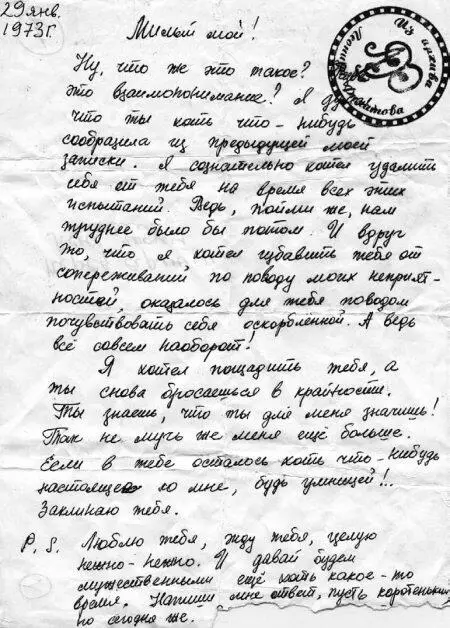 29 янв.
1973 г.
Милый мой!
Из архива
Леонида Филатова
Ну, что же это такое?
это взаимопонимание? Я ду
что ты хоть что-нибудь
сообразила из предыдущей моей
записки. Я сознательно хотел удалить
себя от тебя на время всех этих
испытаний. Ведь, пойми же, нам
труднее было бы потом. И вдруг
то, что я хотел избавить тебя от
сопереживаний по поводу моих неприят-
ностей, оказалось для тебя поводом
почувствовать себя оскорбленной. А ведь
всё совсем наоборот!
Я хотел пощадить тебя, а
ты снова бросаешься в крайности.
Ты знаешь, что ты для меня значишь!
Так не мучь же меня ещё больше.
Если в тебе осталось хоть что-нибудь
настоящего ко мне, будь умницей!..
Заклинаю тебя.
P. S. Люблю тебя, жду тебя, целую
нежно-нежно. И давай будем
мужественными ещё хоть какое-то
время. Напиши мне ответ, пусть коротеньки
но сегодня же.